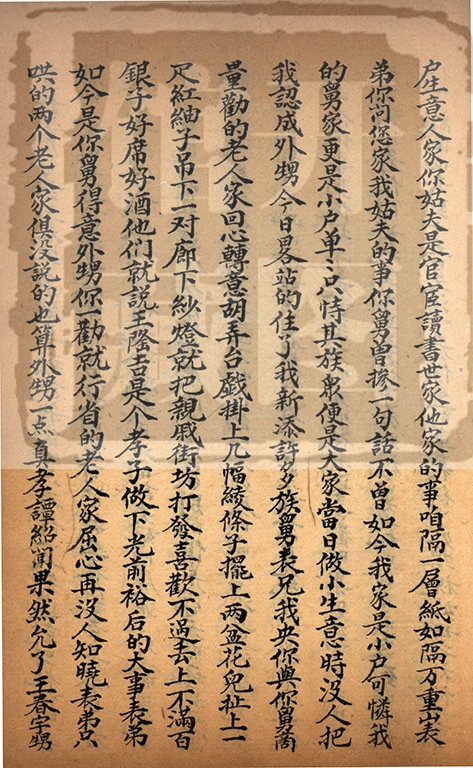 户生意人家你姑夫是官宦讀書世家他家的事咱隔一層紙如隔万重山表
弟你问您家我姑夫的事你舅曽摻一句話不曽如今我家是小户可憐我
的舅家更是小户单二只恃其族眾便是大家當日做小生意時没人把
我認成外甥今日畧站的住了我新添許多族舅表兄我央你與你舅商
量勸的老人家回心轉意胡弄台戯掛上几幅綾條子擺上两盆花兒扯上一
疋紅紬子吊下一对廊下紗燈就把親戚街坊打發喜歡不過去上不滿百
銀子好席好酒他們就説王隆吉是个孝子做下光前裕后的大事表弟
如今是你舅得意外甥你一勸就行省的老人家屈心再没人知曉表弟只
哄的两个老人家俱没説的也算外甥一点真孝譚紹聞果然允了王春宇甥